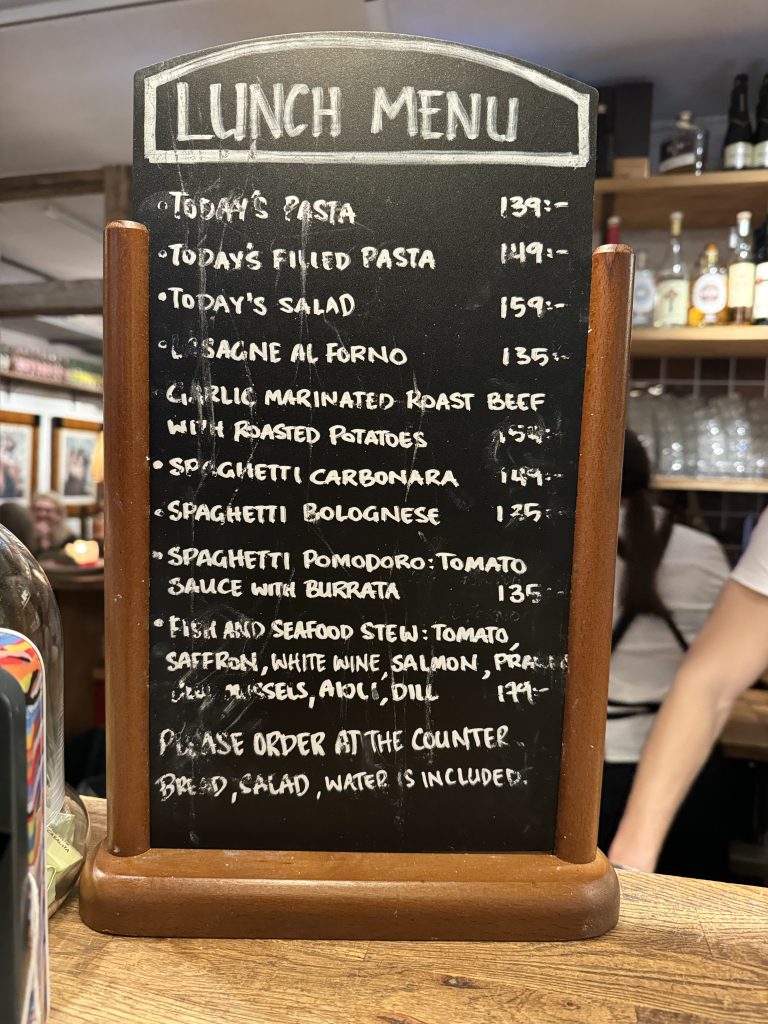 LUNCH MENU
TODAY'S PASTA 139:-
TODAY'S FILLED PASTA 149:-
TODAY'S SALAD 159:-
LASAGNE AL FORNO 135:-
GARLIC MARINATED ROAST BEEF
WITH ROASTED POTATOES
SPAGHETTI CARBONARA 149:-
SPAGHETTI BOLOGNESE 135:-
SPAGHETTI POMODORO: TOMATO
SAUCE WITH BURRATA 135
FISH AND SEAFOOD STEW: TOMATO,
SAFFRON, WHITE WINE, SALMON,
MUSSELS, AIOLI, DILL 179:-
PLEASE ORDER AT THE COUNTER
BREAD, SALAD, WATER IS INCLUDED.